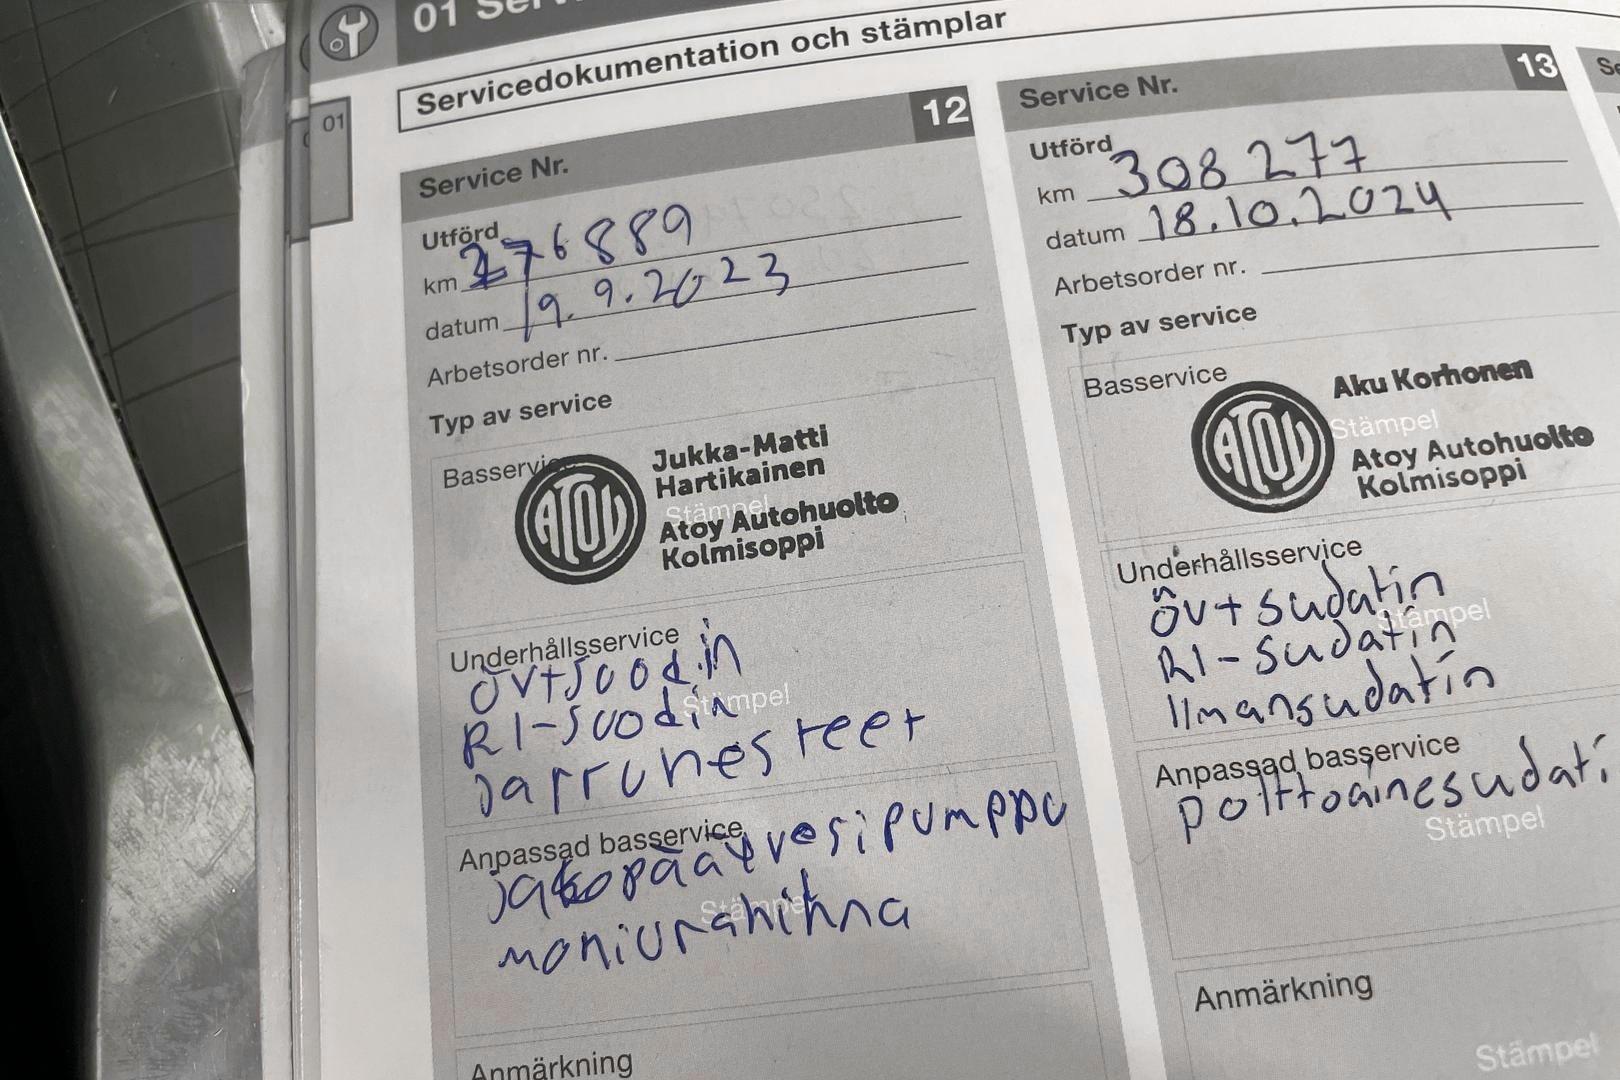 01 Ser
Servicedokumentation och stämplar
01
Service Nr. 12
Utförd
km 276889
datum 19.9.2023
Arbetsorder nr.
Typ av service
Basservice
ATOY
Jukka-Matti
Hartikainen
Stämpel
Atoy Autohuolto
Kolmisoppi
Underhållsservice
öv+suodin
Stämpel
RI-suodin
Jarrunesteet
Anpassad basservice
jakopää+vesipumppu
Stämpel
moniurahihna
Anmärkning
Service Nr. 13
Utförd
km 308277
datum 18.10.2024
Arbetsorder nr.
Typ av service
Basservice
ATOY
Aku Korhonen
Stämpel
Atoy Autohuolto
Kolmisoppi
Underhållsservice
öv+sudatin
Stämpel
RI-sudatin
Ilmansudatin
Anpassad basservice
polttoainesudati
Stämpel
Anmärkning
Stämpel
Se